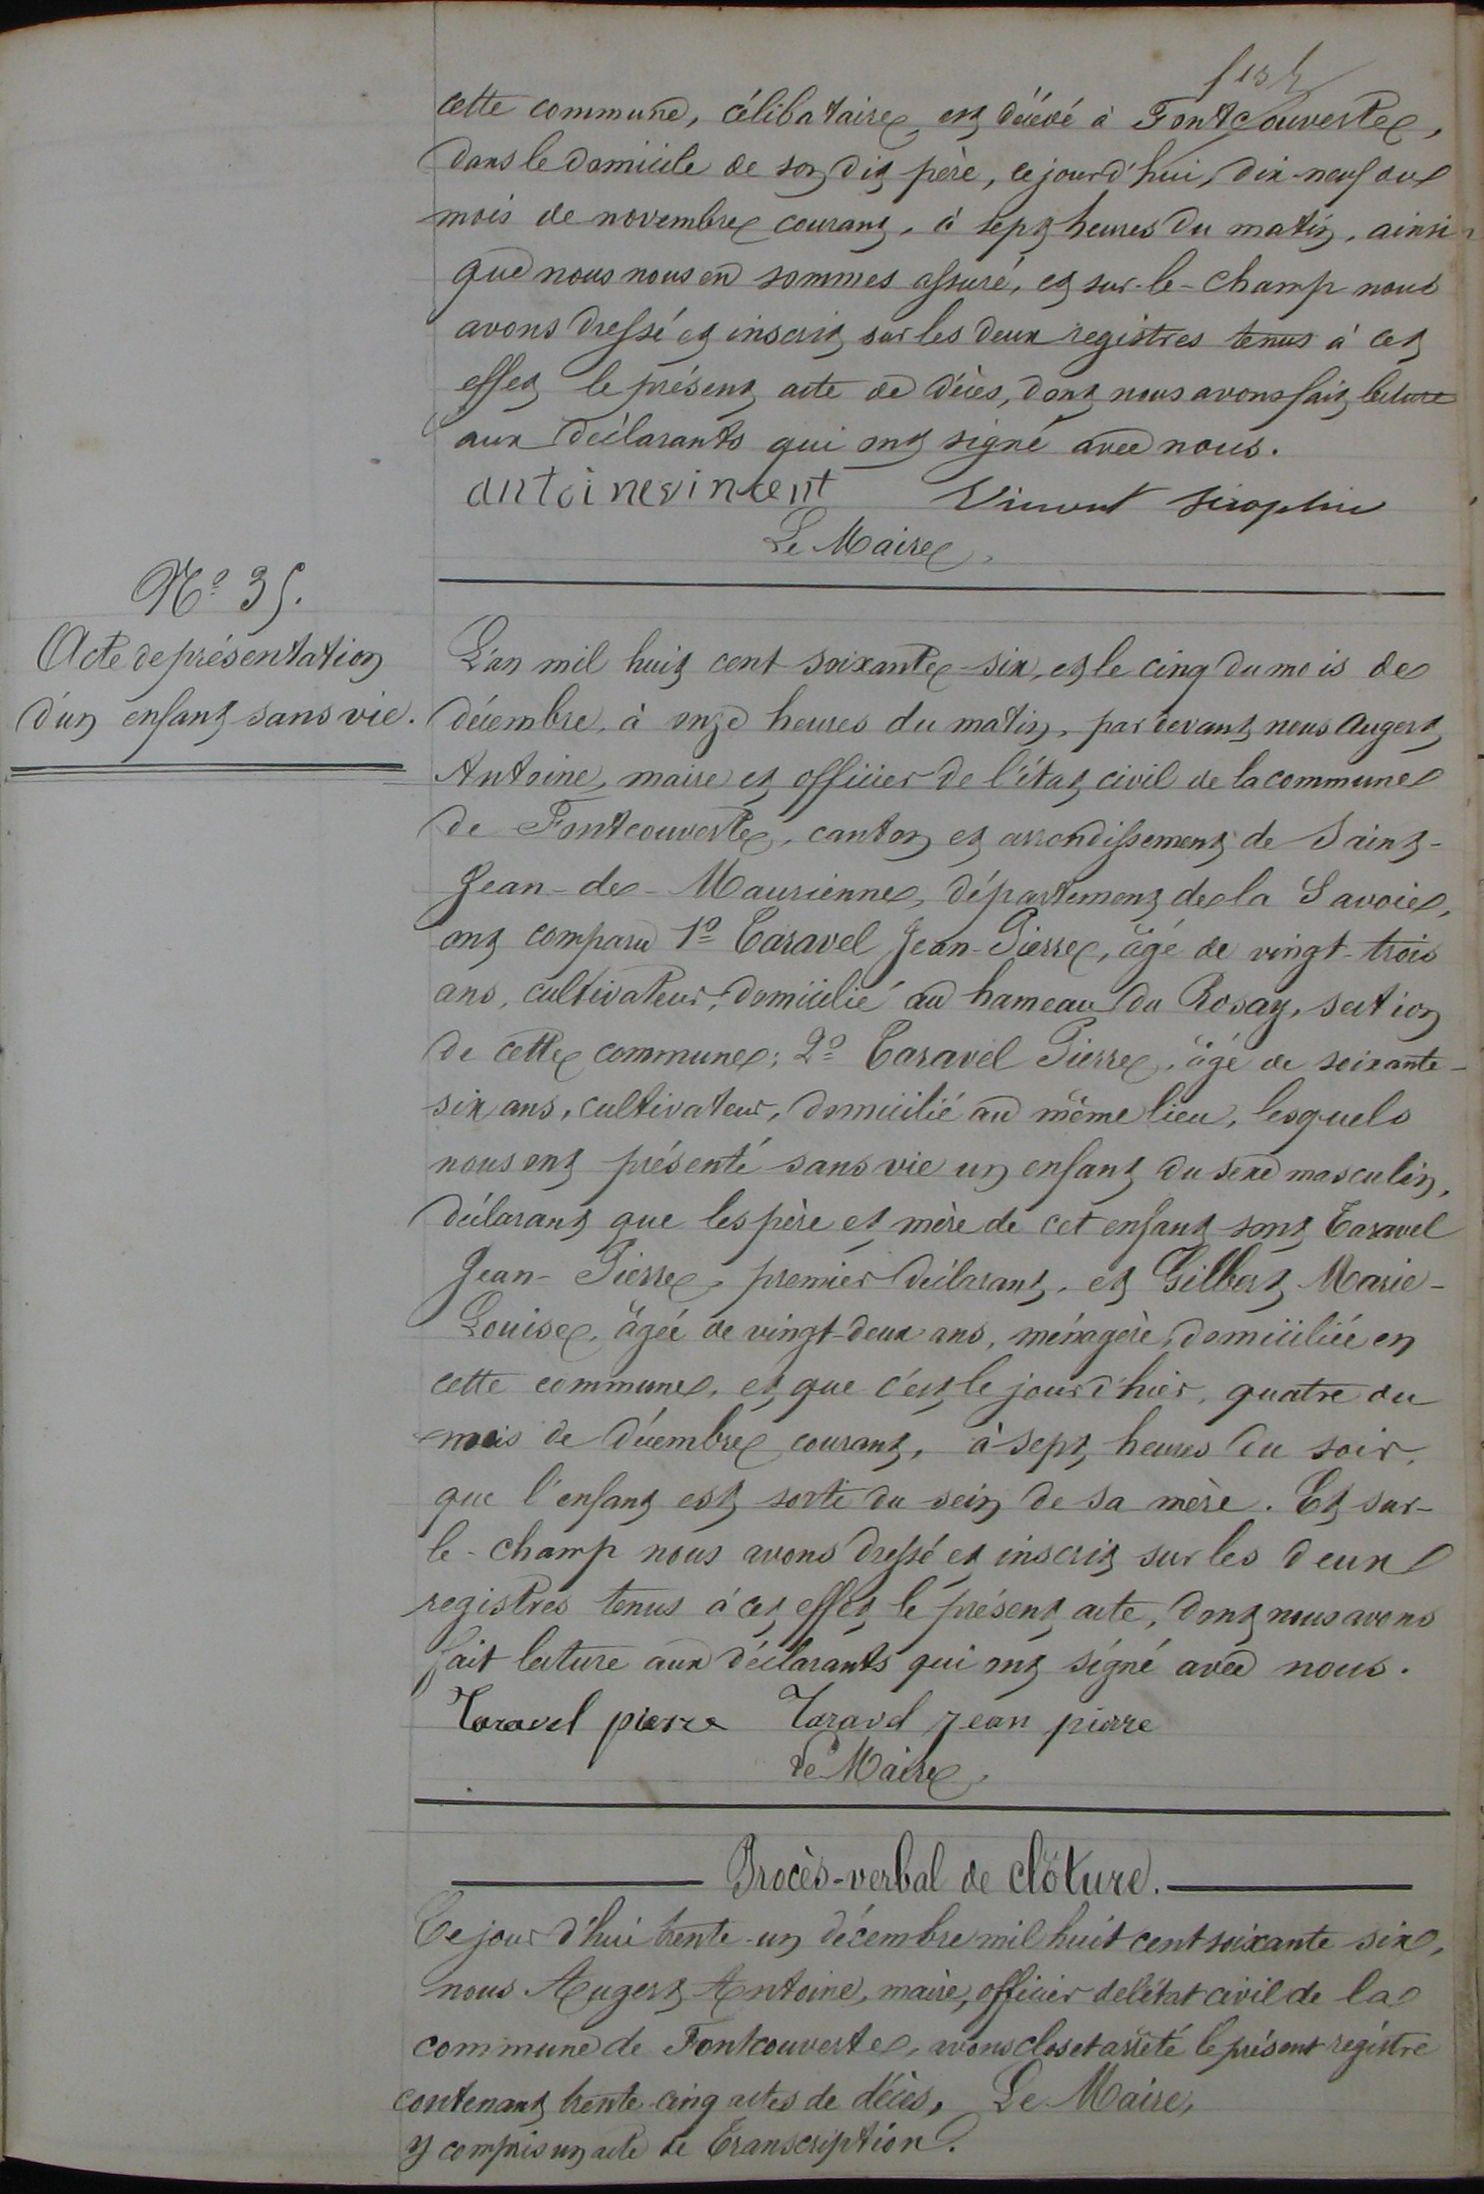 cette commune, célibataire, est décédé à Fontcouverte,
dans le domicile de son dit père, ce jourd'hui, dix-neuf du
mois de novembre courant, à sept heures du matin, ainsi
que nous nous en sommes assuré, et sur-le-champ nous
avons dressé et inscrit sur les deux registres tenus à cet
effet le présent acte de décès, dont nous avons fait lecture
aux déclarants qui ont signé avec nous.
antoine vincent Vincent Séraphin
Le Maire,
N° 35.
Acte de présentation
d'un enfant sans vie.
L'an mil huit cent soixante-six, et le cinq du mois de
décembre, à onze heures du matin, par devant nous Augert
Antoine, maire et officier de l'état civil de la commune
de Fontcouverte, canton et arrondissement de Saint-
Jean-de-Maurienne, département de la Savoie,
ont comparu 1° Taravel Jean-Pierre, âgé de vingt-trois
ans, cultivateur, domicilié au hameau du Rosay, section
de cette commune; 2° Taravel Pierre, âgé de soixante-
six ans, cultivateur, domicilié au même lieu, lesquels
nous ont présenté sans vie un enfant du sexe masculin,
déclarant que les père et mère de cet enfant sont Taravel
Jean-Pierre, premier déclarant, et Gilbert Marie-
Louise, âgée de vingt-deux ans, ménagère, domiciliée en
cette commune, et que c'est le jour d'hier, quatre du
mois de décembre courant, à sept heures du soir,
que l'enfant est sorti du sein de sa mère. Et sur-
le-champ nous avons dressé et inscrit sur les deux
registres tenus à cet effet le présent acte, dont nous avons
fait lecture aux déclarants qui ont signé avec nous.
Taravel pierre Taravel jean pierre
Le Maire,
Procès-verbal de clôture.
Ce jour d'hui trente-un décembre mil huit cent soixante six,
nous Augert Antoine, maire, officier de l'état civil de la
commune de Fontcouverte, avons clos et arrêté le présent régistre
contenant trente-cinq actes de décès, Le Maire,
y compris un acte de Transcription.